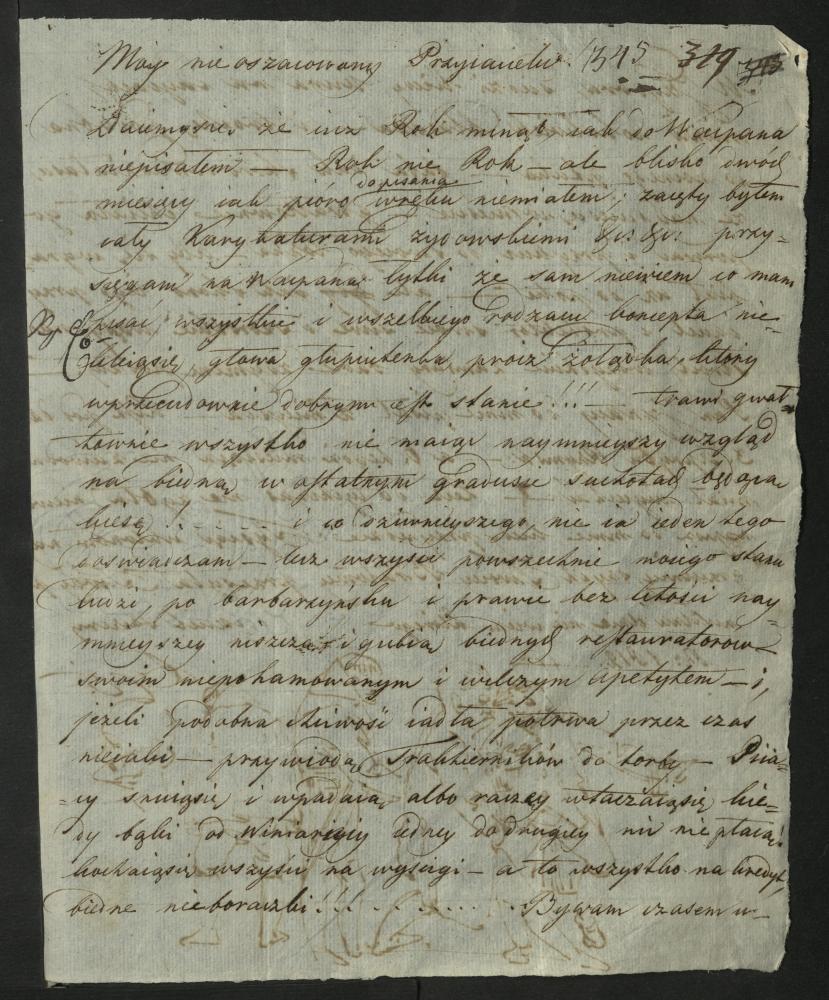 Móy nieoszacowany Przyiacielu! 345 319
Daiemysię że iuż Rok minął iak do Waćpana
niepisałem — Rok nie Rok — ale blisko dwóch
do pisania
miesięcy iak pióro w ręku niemiałem; zaięty byłem
cały Karykaturami żydowskiemi &c: &c: przy-
sięgam na Waćpana łytki że sam niewiem co mam
pisać, wszystkie i wszelkiego rodzaiu koncepta nie
kleiąsię, głowa głupiuteńka prócz żołądka, który
wprzecudownie dobrym iest stanie!!! — trawi gwał-
townie wszystko nie maiąc naymnieyszy wzgląd
na biedną w ostatnim gradusie suchotach będącą
kiesę! . . . . . i co dziwnieyszego, nie ia ieden tego
doświadczam — lecz wszyscy powszechnie moiego stanu
ludzi, po barbarzyńsku i prawie bez litości nay-
mnieyszey niszczą i gubią biednych restauratorow
swoim niepohamowanym i wilczym apetytem — i,
jeżeli podobna chciwość iadła potrwa przez czas
nieiaki — przywiodą Traktierników do torby — Piia-
cy snuiąsię i wpadaią albo raczey wtaczaiąsię kie-
dy bąki od Winiarniy iedney do drugiey nic nie płacąc!
kochaiąsię wszyscy na wyścigi — a to wszystko na kredyt,
biedne nieboraczki!!! . . . . . . . Bywam czasem w